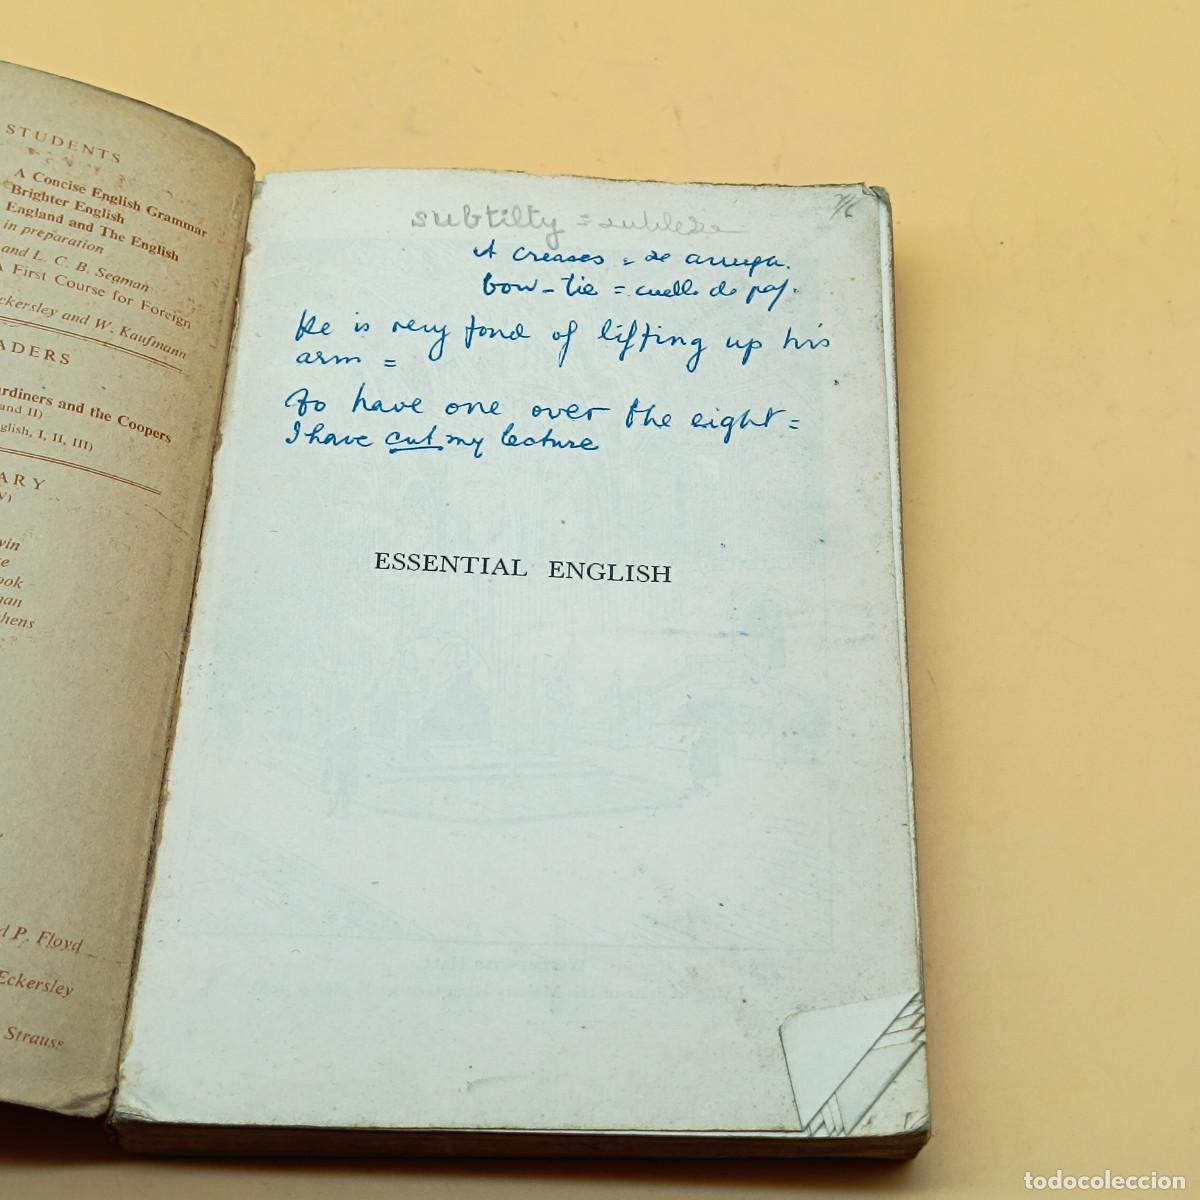 STUDENTS
A Concise English Grammar
Brighter English
England and The English
in preparation
and L. C. B. Seaman
A First Course for Foreign
ckersley and W. Kaufmann
ADERS
rdiners and the Coopers
and II)
glish, I, II, III)
ARY
V)
vin
e
ook
nan
hens
d P. Floyd
Eckersley
Strauss
7/6
subtilty =
It creases = se arruga.
bow-tie = cuello de paj.
He is very fond of lifting up his
arm =
To have one over the eight =
I have cut my lecture
ESSENTIAL ENGLISH
todocoleccion